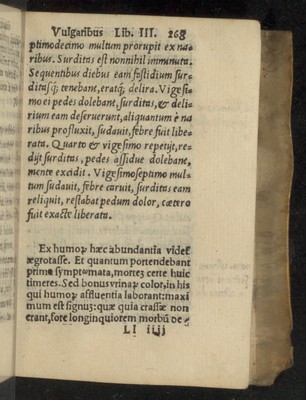 Vulgaribus Lib. III. 268
ptimodecimo multum prorupit ex na-
ribus. Surditas est nonnihil imminuta.
Sequentibus diebus eam fastidium sur-
ditasq́; tenebant, eratq́; delira. Vigesi-
mo ei pedes dolebant, surditas, & deli-
rium eam deseruerunt, aliquantum è na
ribus profluxit, sudauit, febre fuit libe-
rata. Quarto & vigesimo repetijt, re-
dijt surditas, pedes assidue dolebant,
mente excidit. Vigesimoseptimo mul-
tum sudauit, febre caruit, surditas eam
reliquit, restabat pedum dolor, cætero
fuit exacte liberata.
Ex humoꝝ hæc abundantia videt̃
ægrotasse. Et quantum portendebant
prima symptomata, mortē certe huic
timeres. Sed bonus vrinaꝝ color, in his
qui humoꝝ affluentia laborant: maxi
mum est signū: quæ quia crassæ non
erant, fore longinquiorem morbū de-
Ll iiij